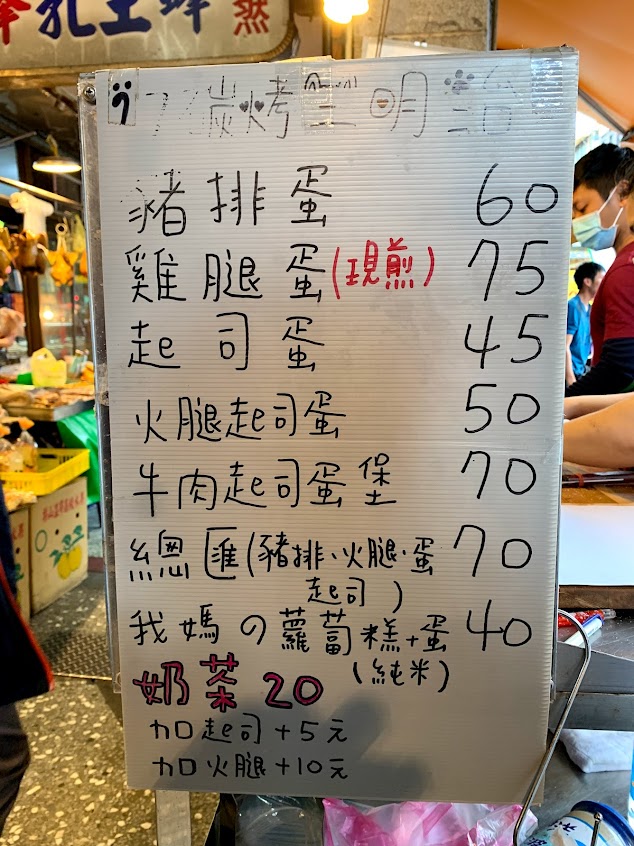 蒸
炭烤三明治
豬排蛋 60
雞腿蛋(現煎) 75
起司蛋 45
火腿起司蛋 50
牛肉起司蛋堡 70
總匯(豬排、火腿、蛋 70
起司)
我媽の蘿蔔糕+蛋 40
(純米)
奶茶 20
加起司+5元
加火腿+10元